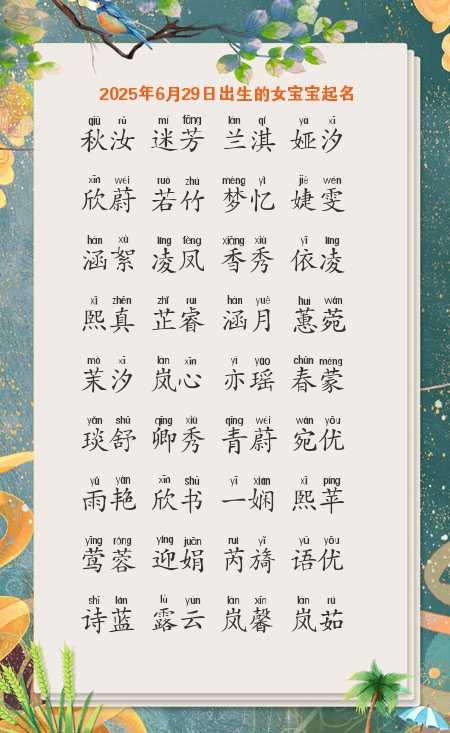 2025年6月29日出生的女宝宝起名
qiū rǔ mí fāng lán qí yà xī
秋汝 迷芳 兰淇 娅汐
xīn wèi ruò zhú mèng yì jié wén
欣蔚 若竹 梦忆 婕雯
hán xù líng fèng xiāng xiù yī líng
涵絮 凌凤 香秀 依凌
xī zhēn zhǐ ruì hán yuè huì wǎn
熙真 芷睿 涵月 蕙菀
mò xī lán xīn yì yáo chūn méng
茉汐 岚心 亦瑶 春蒙
yǎn shū qīng xiù qīng wèi wǎn yōu
琰舒 卿秀 青蔚 宛优
yǔ yàn xīn shū yī xián xī píng
雨艳 欣书 一娴 熙苹
yīng róng yíng juān ruì yǐ yǔ yōu
莺蓉 迎娟 芮旖 语优
shī lán lù yún lán xīn lán rú
诗蓝 露云 岚馨 岚茹